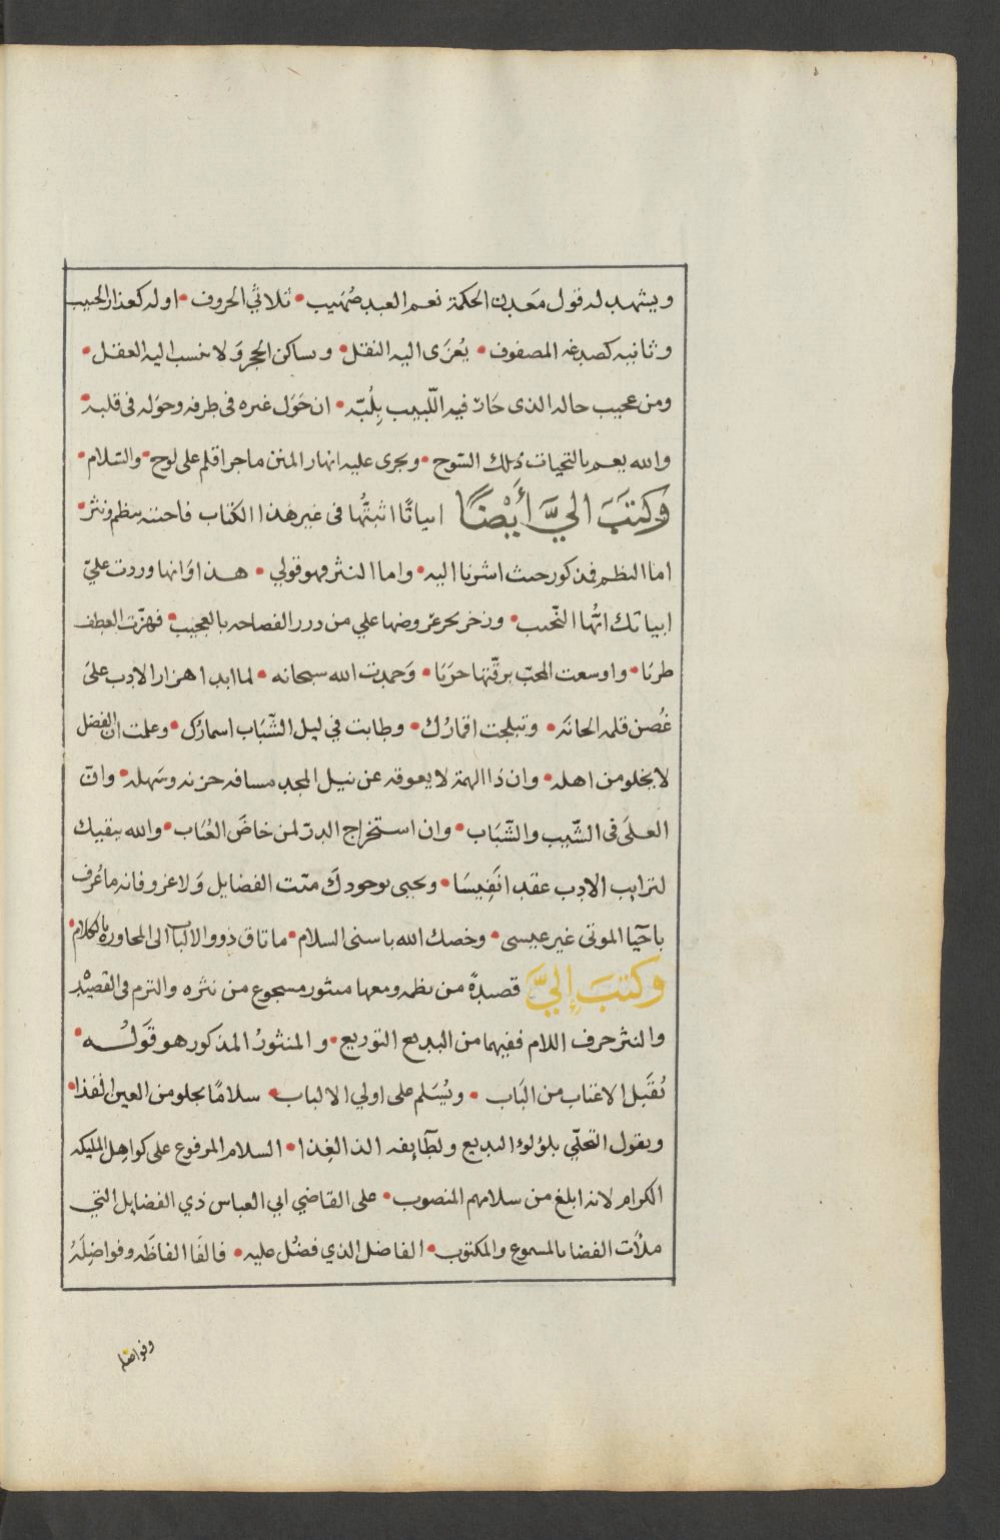 ويشهد له قول معدن الحكمة نعم العبد صُهَيب • ثلاثي الحروف • اوله كعذار الحبيب
وثانيه كصدغه المصفوف • يُعزَى اليه النقل • وساكن الحجر وَلا ينسب اليه العقل •
ومن عجيب حاله الذى حَارَ فيه اللّبيب بِلُبّه • ان حَوَل غيره فى طرفه وحوَله فى قلبه •
والله يعم بالتحيات ذلك السّوح • ويجرى عليه انهار المنن ماجرا قلم على لوح • والسّلام •
وَكَتَبَ اليَّ أَيْضًا ابياتًا اثبتُّها فى غير هذا الكتاب فاجبته بنظم ونثر •
اما النظم فمذكور حيث اشرنا اليه • واما النثر فهو قولي • هذا وَانها وردت عليّ
ابياتك ايُّها النّجيب • وزخر بحر عروضها علي من درر الفصاحه بالعجيب • فهزّت العطف
طربًا • واوسعت المحبّ برقّتها حرَبًا • وَحمدت الله سبحانه • لما ابدا هزار الادب علىَ
غُصن قلمه الحانَه • وتبلجت اقمارُك • وطابت في ليل الشّبَاب اسمارُك • وعلمت ان الفضل
لا يخلو من اهله • وان ذا الهمة لا يعوقه عن نيل المجد مسافه حزنه وسَهله • وانّ
العلَى فى الشّيب والشّبَاب • وان استخراج الدرّ لمن خاضَ العُبَاب • والله يبقيك
لترايب الادب عقدا نَفِيسَا • ويحيى بوجودكَ ميّت الفضايل وَلا غرو فانه ما عُرف
باحيا الموتى غير عيسى • وخصك الله باسنى السلام • ما تاق ذووا الالباب الى المحاوره بالكلام •
وَكتَبَ إليَّ قصيدةً من نظمه ومعها منثور مسجوع من نثره والتزم فى القصيده
والنثر حرف اللام ففيهما من البديع التوريع • والمنثورُ المذكور هو قَولُه •
نُقَبّل الاعتاب من البَاب • ونُسَلم على اولي الالباب • سلامًا يجلو من العين القذا •
ويقول التحلّي بلؤلوء البديع ولطَايفه الذ الغِذا • السلام المرفوع على كواهِل المليكه
الكرام لانه ابلغ من سلامهم المنصوب • على القاضي ابي العباس ذي الفضايل التي
ملأت الفضا بالمسموع والمكتوب • الفاضل الذي فضُل عليه • فالفَا الفاظَه وفواضِلَهُ
وفواضله